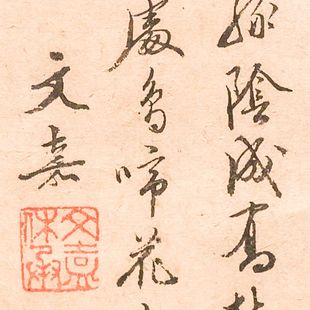 綠陰成
處鳥啼花
文嘉
文嘉
休承